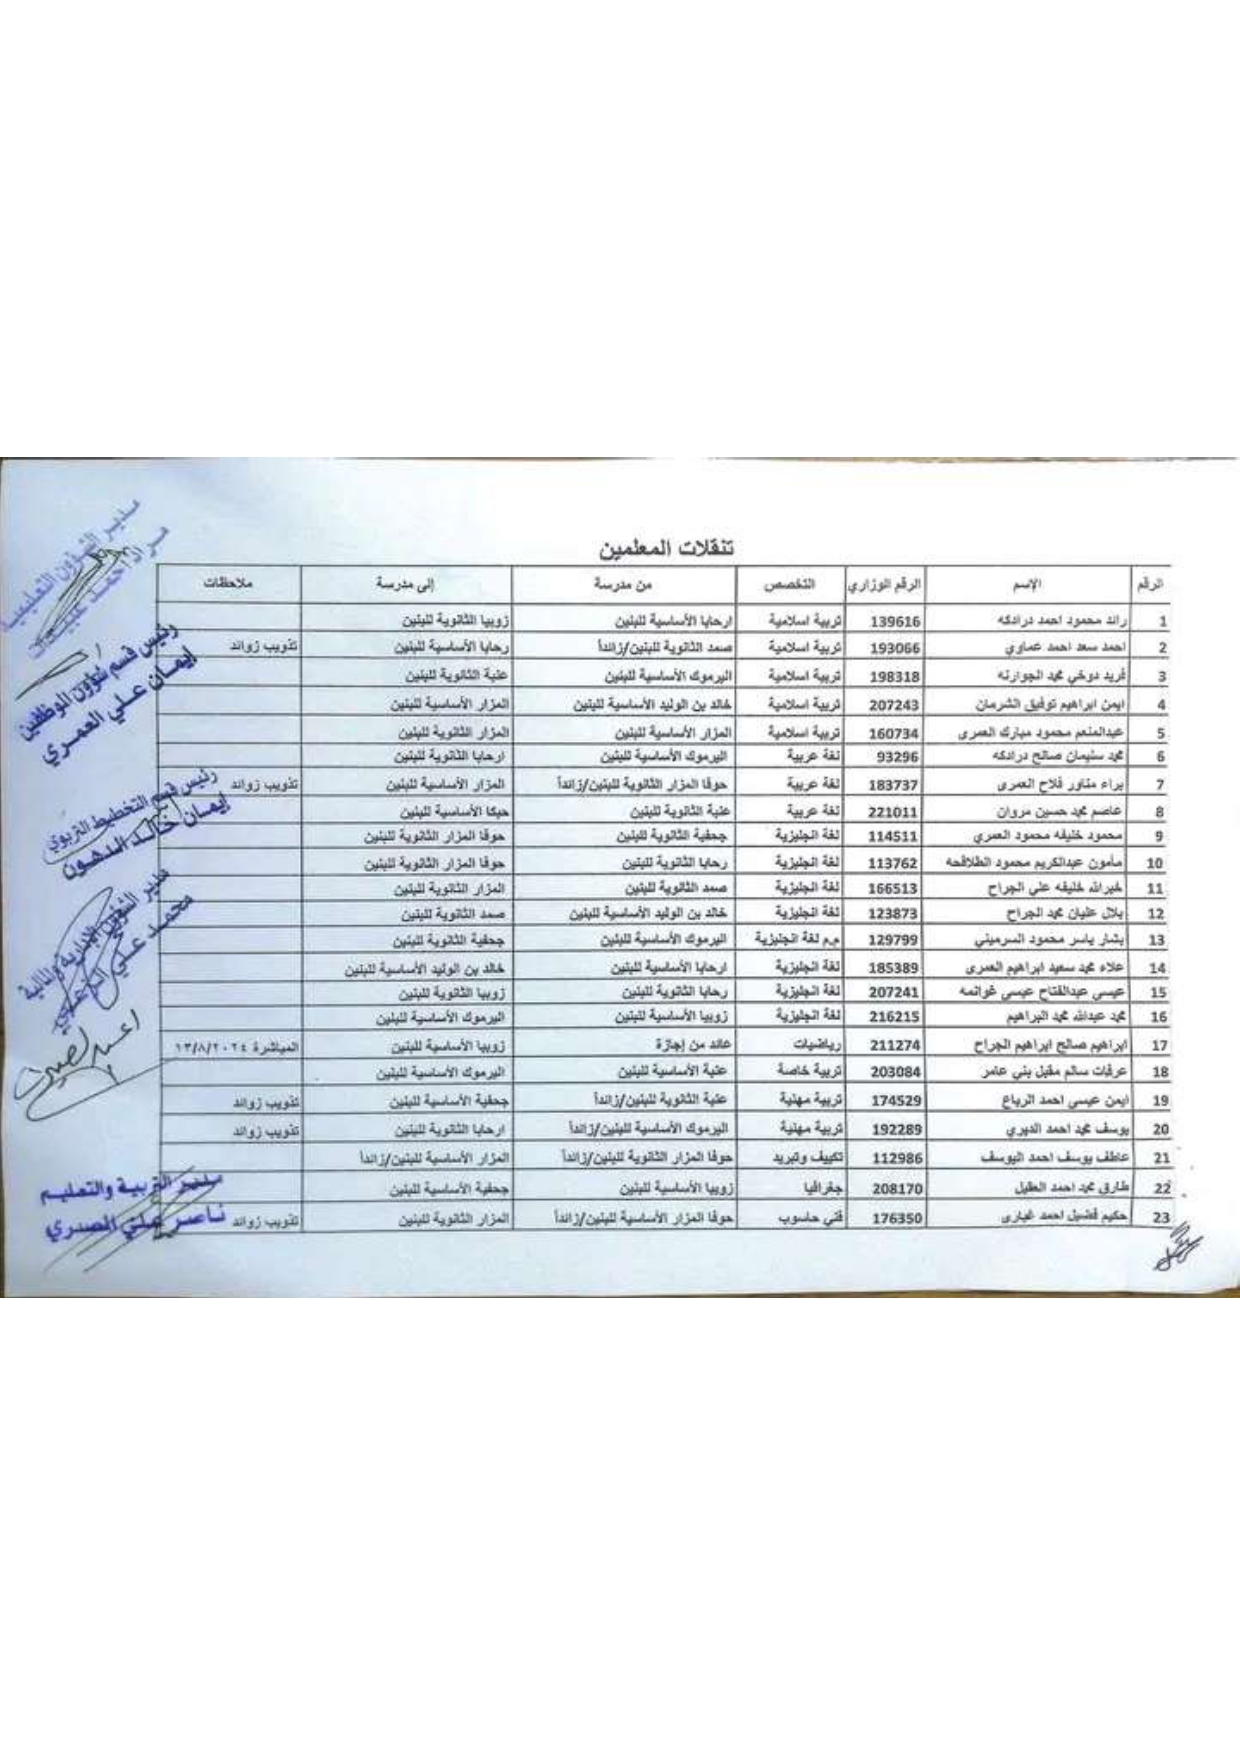 تنقلات المعلمين
الرقم الإسم الرقم الوزاري التخصص من مدرسة إلى مدرسة ملاحظات
1 رائد محمود احمد درادكه 139616 تربية اسلامية ارحابا الأساسية للبنين زوبيا الثانوية للبنين
2 احمد سعد احمد عماوي 193066 تربية اسلامية صمد الثانوية للبنين/زائداً رحابا الأساسية للبنين تذويب زوائد
3 فريد دوخي محمد الجوارنه 198318 تربية اسلامية اليرموك الأساسية للبنين عنبة الثانوية للبنين
4 ايمن ابراهيم توفيق الشرمان 207243 تربية اسلامية خالد بن الوليد الأساسية للبنين المزار الأساسية للبنين
5 عبدالمنعم محمود مبارك العمري 160734 تربية اسلامية المزار الأساسية للبنين المزار الثانوية للبنين
6 محمد سليمان صالح درادكه 93296 لغة عربية اليرموك الأساسية للبنين ارحابا الثانوية للبنين
7 براء مناور فلاح العمري 183737 لغة عربية حوفا المزار الثانوية للبنين/زائداً المزار الأساسية للبنين تذويب زوائد
8 عاصم محمد حسين مروان 221011 لغة عربية عنبة الثانوية للبنين حبكا الأساسية للبنين
9 محمود خليفه محمود العمري 114511 لغة انجليزية جحفية الثانوية للبنين حوفا المزار الثانوية للبنين
10 مأمون عبدالكريم محمود الطلافحه 113762 لغة انجليزية رحابا الثانوية للبنين حوفا المزار الثانوية للبنين
11 خيرالله خليفه علي الجراح 166513 لغة انجليزية صمد الثانوية للبنين المزار الثانوية للبنين
12 بلال عليان محمد الجراح 123873 لغة انجليزية خالد بن الوليد الأساسية للبنين صمد الثانوية للبنين
13 بشار ياسر محمود السرميني 129799 م.م لغة انجليزية اليرموك الأساسية للبنين جحفية الثانوية للبنين
14 علاء محمد سعيد ابراهيم العمري 185389 لغة انجليزية ارحابا الأساسية للبنين خالد بن الوليد الأساسية للبنين
15 عيسى عبدالفتاح عيسى غوانمه 207241 لغة انجليزية رحابا الثانوية للبنين زوبيا الثانوية للبنين
16 محمد عبدالله محمد البراهيم 216215 لغة انجليزية زوبيا الأساسية للبنين اليرموك الأساسية للبنين
17 ابراهيم صالح ابراهيم الجراح 211274 رياضيات عائد من إجازة زوبيا الأساسية للبنين المباشرة ١٣/٨/٢٠٢٤
18 عرفات سالم مقبل بني عامر 203084 تربية خاصة عنبة الأساسية للبنين اليرموك الأساسية للبنين
19 ايمن عيسى احمد الرباع 174529 تربية مهنية عنبة الثانوية للبنين/زائداً جحفية الأساسية للبنين تذويب زوائد
20 يوسف محمد احمد الديري 192289 تربية مهنية اليرموك الأساسية للبنين/زائداً ارحابا الثانوية للبنين تذويب زوائد
21 عاطف يوسف احمد اليوسف 112986 تكييف وتبريد حوفا المزار الثانوية للبنين/زائداً المزار الأساسية للبنين/زائداً
22 طارق محمد احمد العقيل 208170 جغرافيا زوبيا الأساسية للبنين جحفية الأساسية للبنين
23 حكيم فضيل احمد غباري 176350 فني حاسوب حوفا المزار الأساسية للبنين/زائداً المزار الثانوية للبنين تذويب زوائد
مدير الشؤون التعليمية
رئيس قسم شؤون الموظفين
إيمان علي العمري
رئيس قسم التخطيط التربوي
إيمان خالد الدهون
مدير الشؤون الإدارية والمالية
محمد علي
مدير التربية والتعليم
ناصر علي الصدري